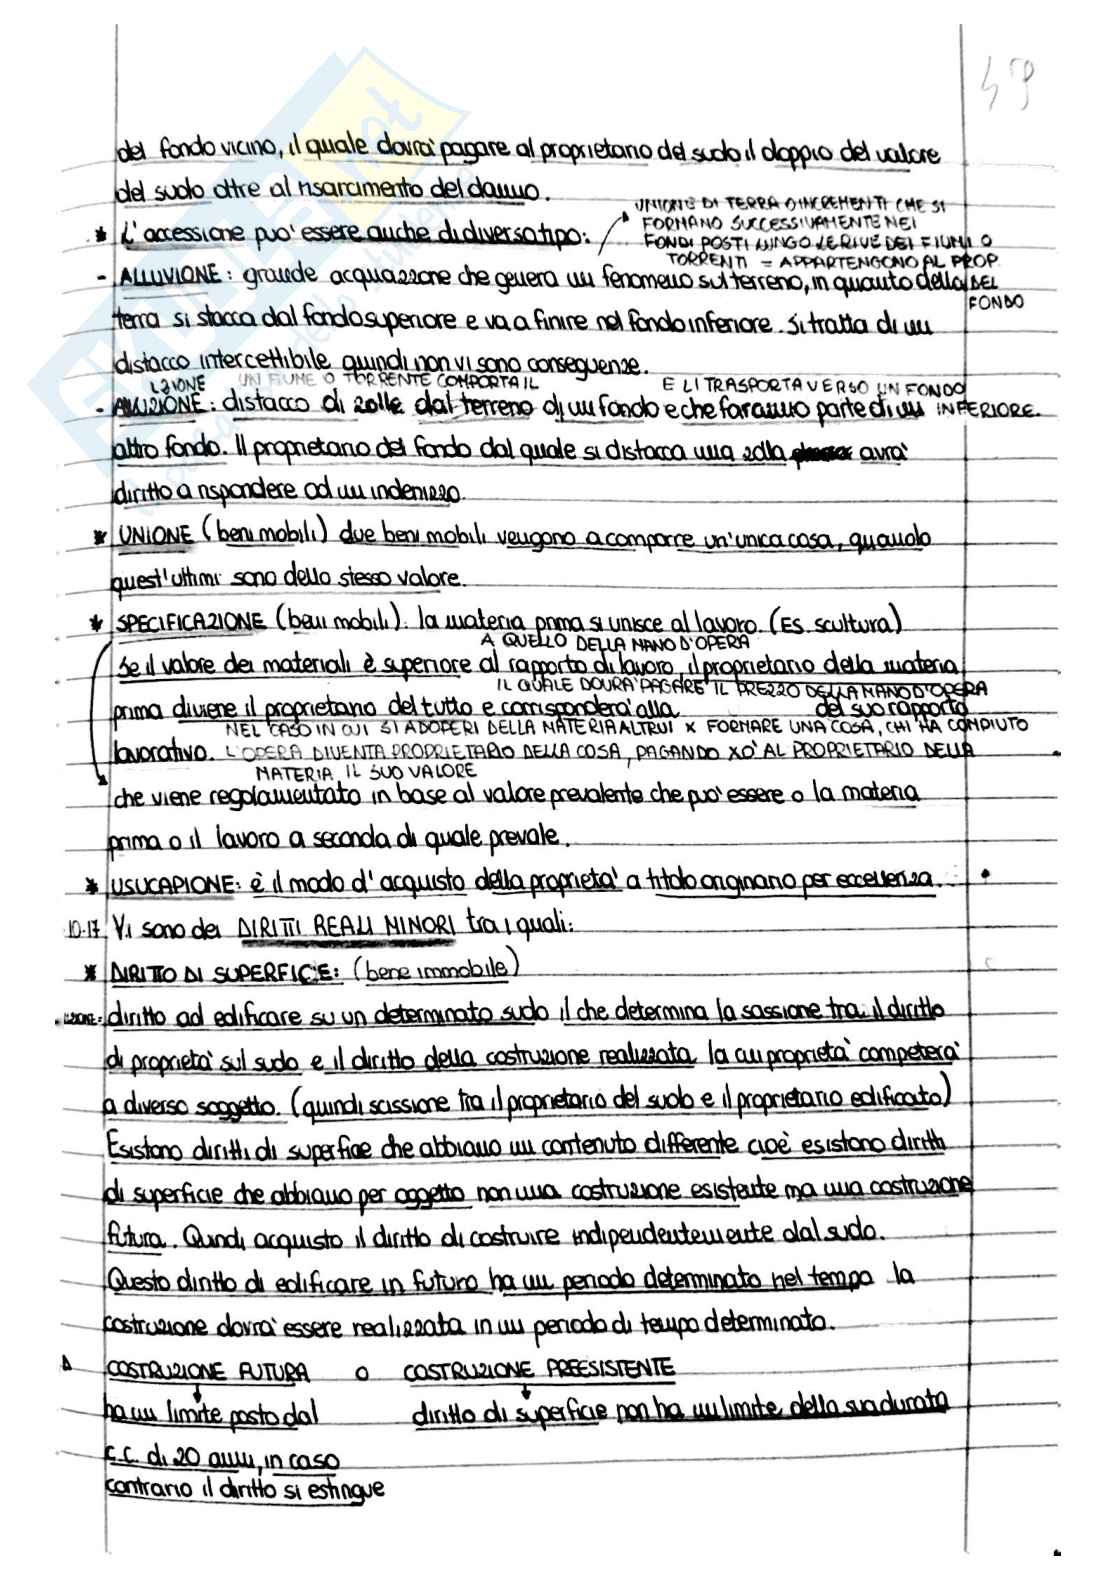 49
del fondo vicino, il quale dovrà pagare al proprietario del suolo il doppio del valore
del suolo oltre al risarcimento del danno.
* L'accessione può essere anche di diverso tipo:
UNIONE DI TERRA O INCREMENTI CHE SI
FORMANO SUCCESSIVAMENTE NEI
FONDI POSTI LUNGO LE RIVE DEI FIUMI O
TORRENTI = APPARTENGONO AL PROP.
DEL
FONDO
- ALLUVIONE: grande acquazzone che genera un fenomeno sul terreno, in quanto della
terra si stacca dal fondo superiore e va a finire nel fondo inferiore. Si tratta di un
distacco intercettibile quindi non vi sono conseguenze.
LZIONE UN FIUME O TORRENTE COMPORTA IL E LI TRASPORTA VERSO UN FONDO
- : distacco di zolle dal terreno di un fondo e che faranno parte di un INFERIORE.
altro fondo. Il proprietario del fondo dal quale si distacca una zolla avrà
diritto a rispondere ad un indennizzo.
* UNIONE (beni mobili) due beni mobili vengono a comporre un'unica cosa, quando
quest'ultimi sono dello stesso valore.
* SPECIFICAZIONE (beni mobili). la materia prima si unisce al lavoro. (Es. scultura)
A QUELLO DELLA MANO D'OPERA
Se il valore dei materiali è superiore al rapporto di lavoro, il proprietario della materia
IL QUALE DOVRA' PAGARE IL PREZZO DELLA MANO D'OPERA
prima diviene il proprietario del tutto e corrisponderà alla del suo rapporto
NEL CASO IN CUI SI ADOPERI DELLA MATERIA ALTRUI X FORMARE UNA COSA, CHI HA COMPIUTO
lavorativo. L'OPERA DIVENTA PROPRIETARIO DELLA COSA, PAGANDO XO' AL PROPRIETARIO DELLA
MATERIA IL SUO VALORE
che viene regolamentato in base al valore prevalente che può essere o la materia
prima o il lavoro a seconda di quale prevale.
* USUCAPIONE: è il modo d'acquisto della proprietà a titolo originario per eccellenza.
10-17 Vi sono dei DIRITTI REALI MINORI tra i quali:
* DIRITTO DI SUPERFICE: (bene immobile)
diritto ad edificare su un determinato suolo il che determina la sassione tra: il diritto
di proprietà sul suolo e il diritto della costruzione realizzata la cui proprietà competerà
a diverso soggetto. (quindi scissione tra il proprietario del suolo e il proprietario edificato)
Esistono diritti di superficie che abbiano un contenuto differente cioè esistono diritti
di superficie che abbiano per oggetto non una costruzione esistente ma una costruzione
futura. Quindi acquisto il diritto di costruire indipendentemente dal suolo.
Questo diritto di edificare in futuro ha un periodo determinato nel tempo la
costruzione dovrà essere realizzata in un periodo di tempo determinato.
COSTRUZIONE FUTURA O COSTRUZIONE PREESISTENTE
ha un limite posto dal diritto di superficie non ha un limite della sua durata
c.c. di 20 anni, in caso
contrario il diritto si estingue